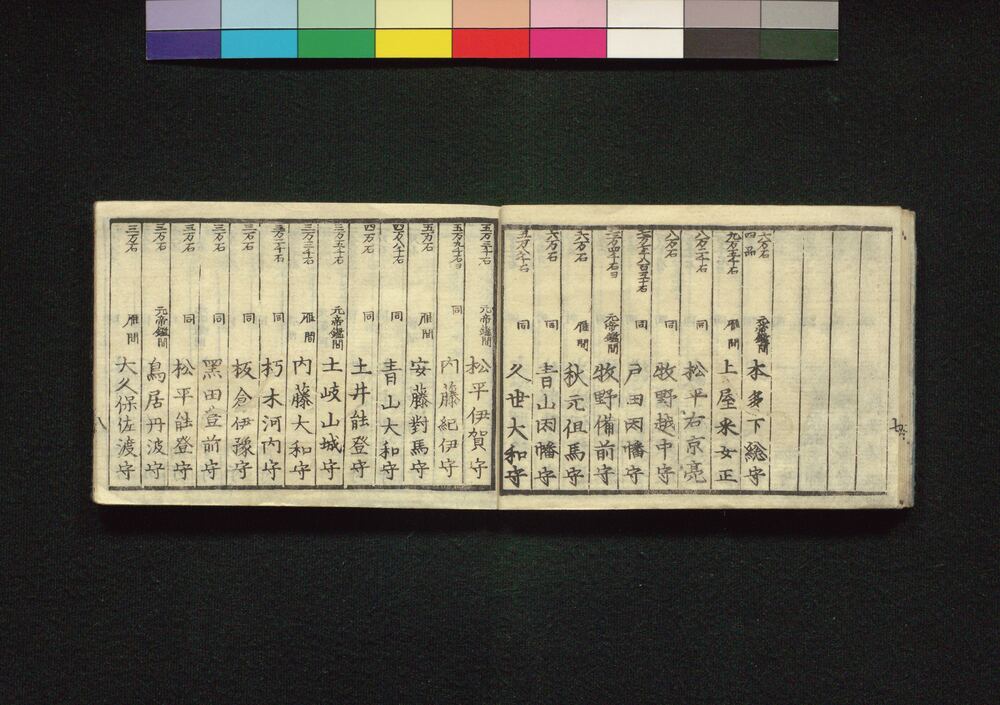 六万石 四品 元帝鑑間 本多下総守
九万五千石 雁間 土屋采女正
八万二千石 同 松平右京亮
八万石 同 牧野越中守
七万千八百五十石 同 戸田因幡守
元帝鑑間 牧野備前守
六万石 雁間 秋元但馬守
六万石 同 青山因幡守
五万八千石 同 久世大和守
五万三千石 元帝鑑間 松平伊賀守
五万九十石 同 内藤紀伊守
五万石 雁間 安藤對馬守
四万八千石 同 青山大和守
四万石 同 土井能登守
三万五千石 元帝鑑間 土岐山城守
三万三千石 雁間 内藤大和守
三万二千石 同 朽木河内守
三万石 同 板倉伊豫守
三万石 同 黑田豊前守
三万石 同 松平能登守
三万石 元帝鑑間 鳥居丹波守
三万石 雁間 大久保佐渡守
八